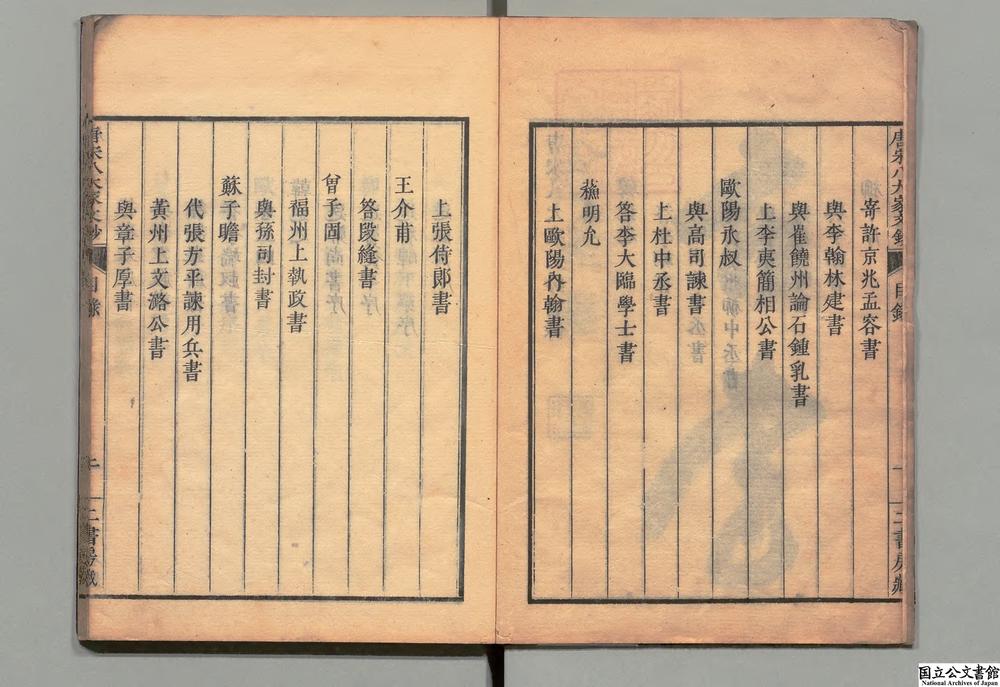 唐宋八大家文鈔 目錄 一 二書房藏
寄許京兆孟容書
與李翰林建書
與崔饒州論石鍾乳書
上李夷簡相公書
歐陽永叔
與高司諫書
上杜中丞書
答李大臨學士書
蘓明允
上歐陽內翰書
上張侍郎書
王介甫
答段縫書
曾子固
福州上執政書
與孫司封書
蘇子瞻
代張方平諫用兵書
黃州上文潞公書
與章子厚書
唐宋八大家文鈔 目錄 二書房藏
国立公文書館
National Archives of Japan